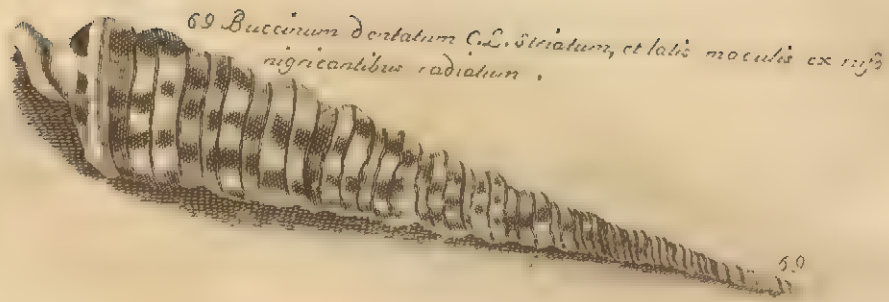 69 Buccinum dentatum C.L. striatum, et latis maculis ex rufo
nigricantibus radiatum.
69